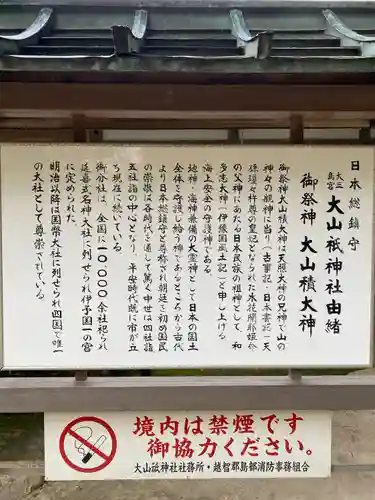 日本総鎮守
大三島宮 大山祇神社由緒
御祭神 大山積大神
御祭神大山積大神は天照大神の兄神で山の
神々の親神に当り(古事記・日本書記)天
孫瓊々杵尊の皇妃となられた木花開耶姫命
の父神にあたる日本民族の祖神として、和
多志大神(伊豫国風土記)と申し上げる
海上安全の守護神である。
地神・海神兼備の大霊神として日本の国土
全体を守護し給う神であるところから古代
より日本総鎮守と尊称され朝廷を初め国民
の崇敬は各時代を通して篤く中世は四社詣
五社詣の中心となり、平安時代既に市が立
ち現在に続いている。
御分社は、全国に10,000余社祀られ
延喜式名神大社に列せられ伊予国一の宮
に定められた。
明治以降は国幣大社に列せられ四国で唯一
の大社として尊崇されている。
境内は禁煙です
御協力ください。
大山祇神社社務所・越智郡島部消防事務組合